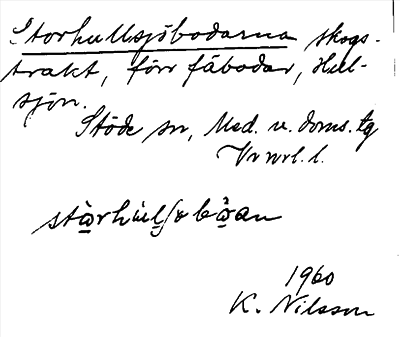 Storhullsjöbodarna skogs-
trakt, förr fäbodar, Hul-
sjön.
Stöde sn, Med. v. doms. tg
Vn wrl. l.
1960
K. Nilsson